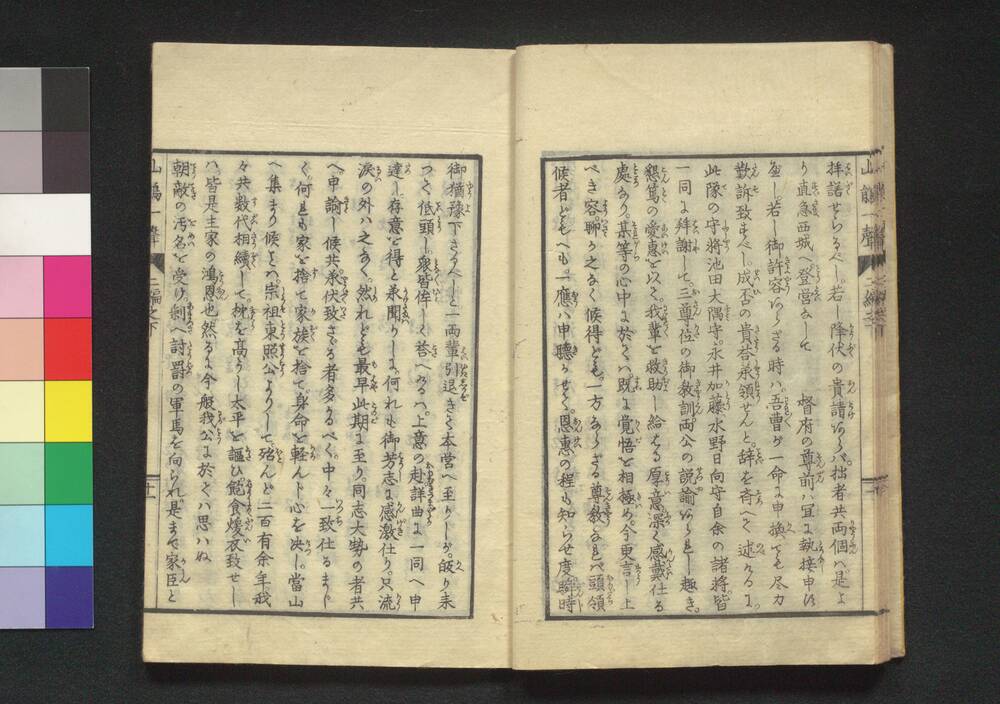 拝諾せらるべし。若し降伏の貴請あらバ。拙者共両個ハ是よ
り直急西城へ登営なして 督府の尊前ハ宜に執接申候
べし。若し御許容あらざる時ハ。吾曹が一命に申換ても尽力
歎訴致すべし。成否の貴答承領せんと。辞を斉へて述ける
此隊の守將池田大隅守。永井加藤水野日向守自余の諸将。皆
一同に拜謝して。三尊位の御教訓両公の説諭ありし趣き。
懇篤の愛恵を以て。我輩を救助し給はる厚意深く感戴仕る
處あり。某等の心中に於てハ。既に覚悟を相極め。今更言上
べき容。聊か之なく候得ども。一方あらざる尊教なれバ頭領
候者どもへも一應ハ申聴かせて。恩恵の程も知らせ度。瞬時
御猶豫下さるべしと一両輩引退きて本営へ至りしが。皈り来
つて低頭し。衆皆侔しく答へるハ。上意の赴詳曲に一同へ申
達し存意を得と承聞りしに。何れも御芳志に感激仕り。只流
涙の外ハ之なく。然れども最早此期に至り。同志大勢の者共
へ申諭し候共。承伏致さざる者多かるべく。中々一致仕るまじ
く。何れも家を捨て家族を捨て。身命を軽んじ心を決し。當山
へ集まり候ハ。崇祖東照公よりして。殆んど二百有余年我
々共数代相續して。枕を高うし太平を謳ひ飽食煖衣致せし
ハ。皆是主家の鴻恩也。然るに今般我公に於てハ思ハぬ
朝敵の汚名を受け。剰へ討罰の軍馬を向られ。是まで家臣と
山鵑一聲 二編之下 十一